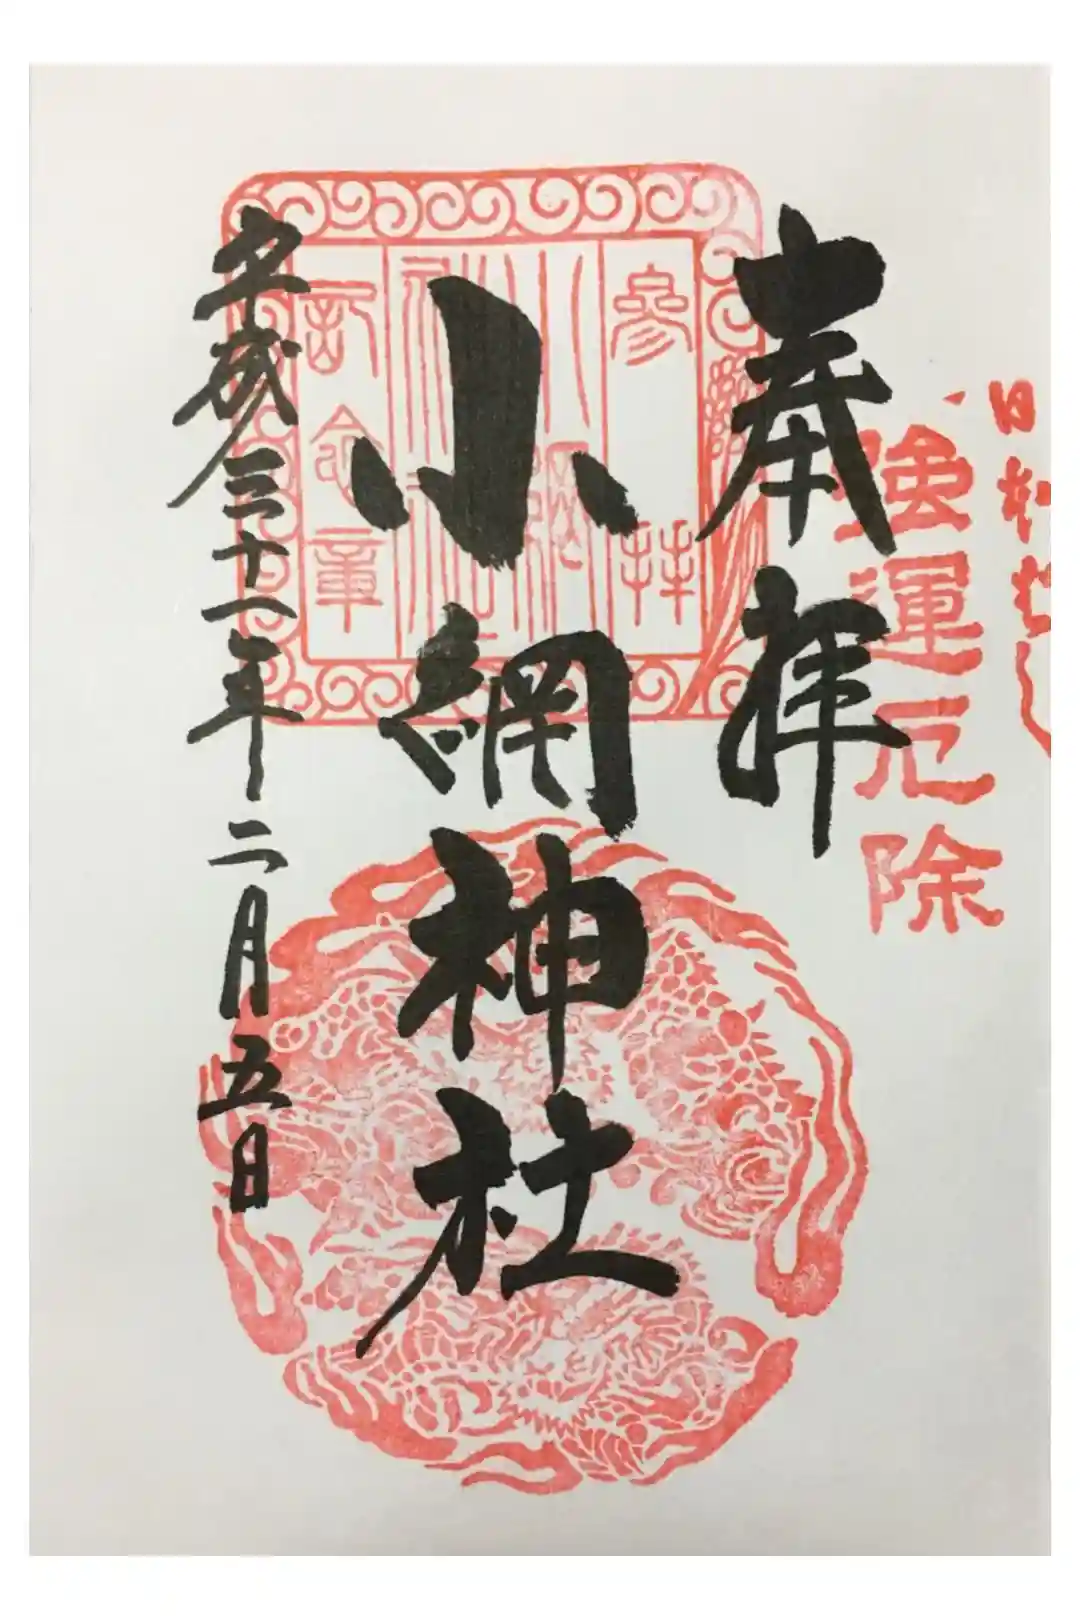 日本ばし
強運厄除
奉拝
小網神社
平成三十一年二月五日
参拝
小網
神社
記念章